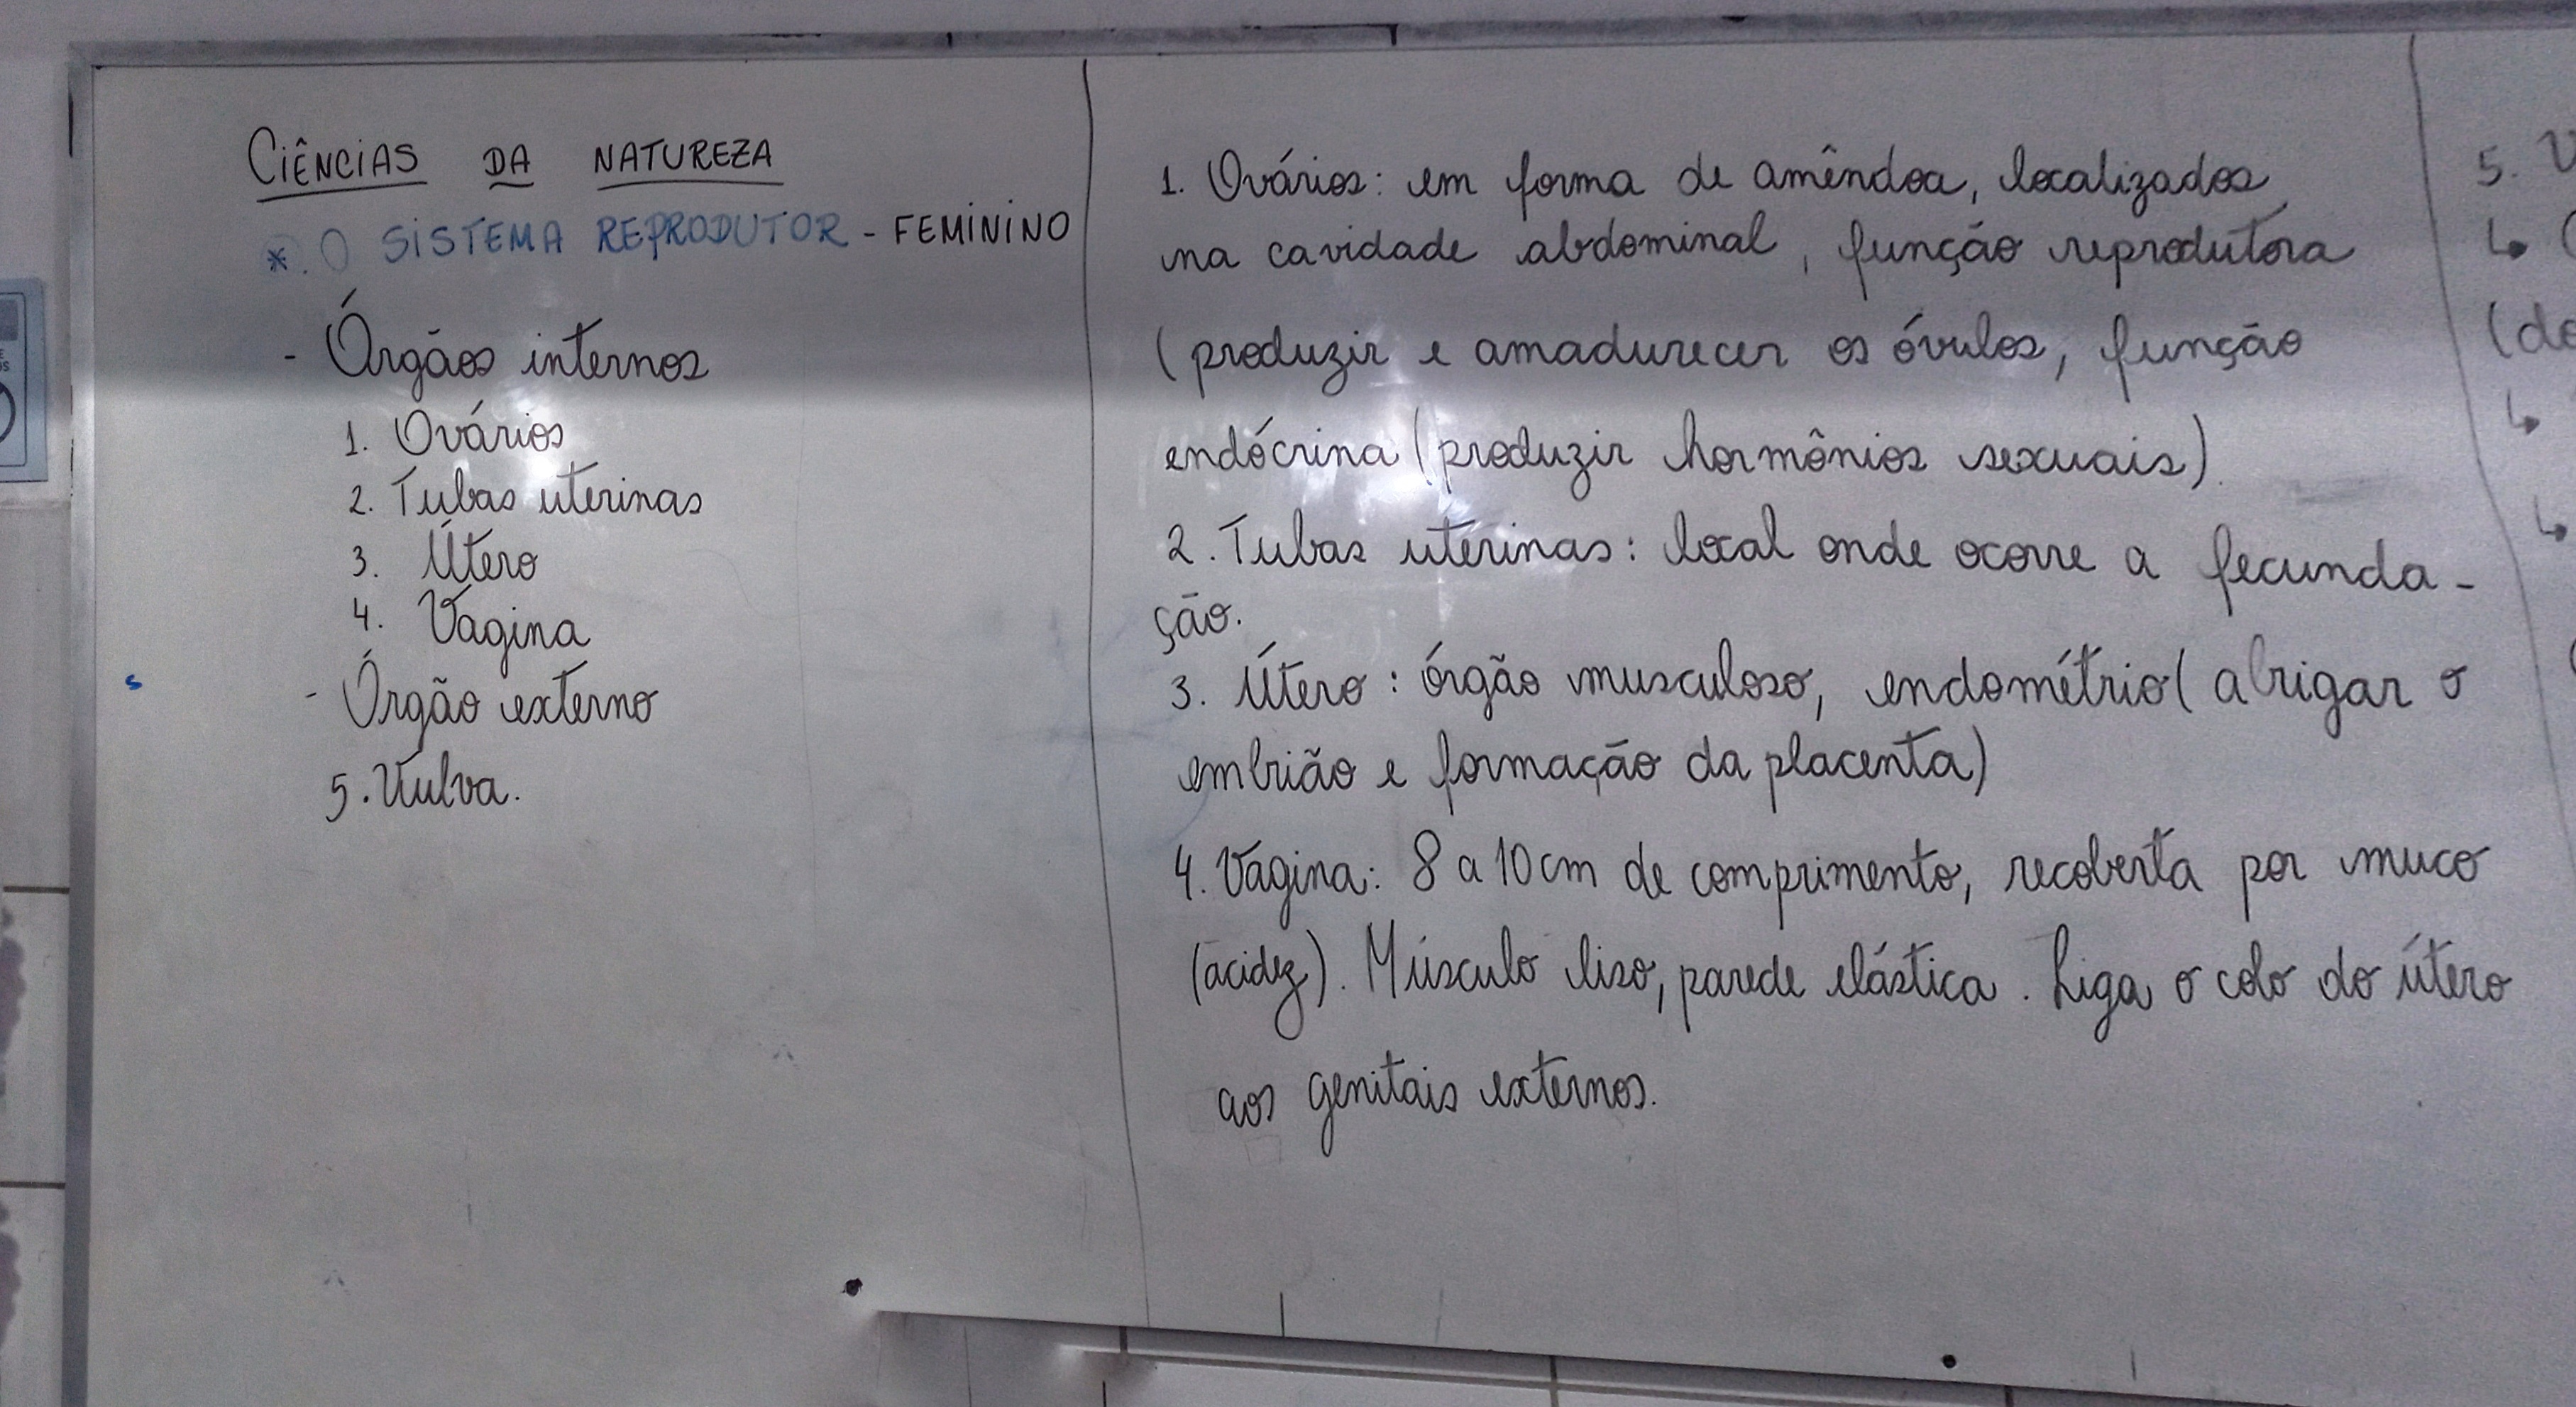 CIÊNCIAS DA NATUREZA
*. O SISTEMA REPRODUTOR - FEMININO
- Órgãos internos
1. Ovários
2. Tubas uterinas
3. Útero
4. Vagina
- Órgão externo
5. Vulva.
1. Ovários: em forma de amêndoa, localizados
na cavidade abdominal, função reprodutora
(produzir e amadurecer os óvulos, função
endócrina (produzir hormônios sexuais).
2. Tubas uterinas: local onde ocorre a fecunda-
ção.
3. Útero: órgão musculoso, endométrio (abrigar o
embrião e formação da placenta)
4. Vagina: 8 a 10 cm de comprimento, recoberta por muco
(acidez). Músculo liso, parede elástica. Liga o colo do útero
aos genitais externos.
5.